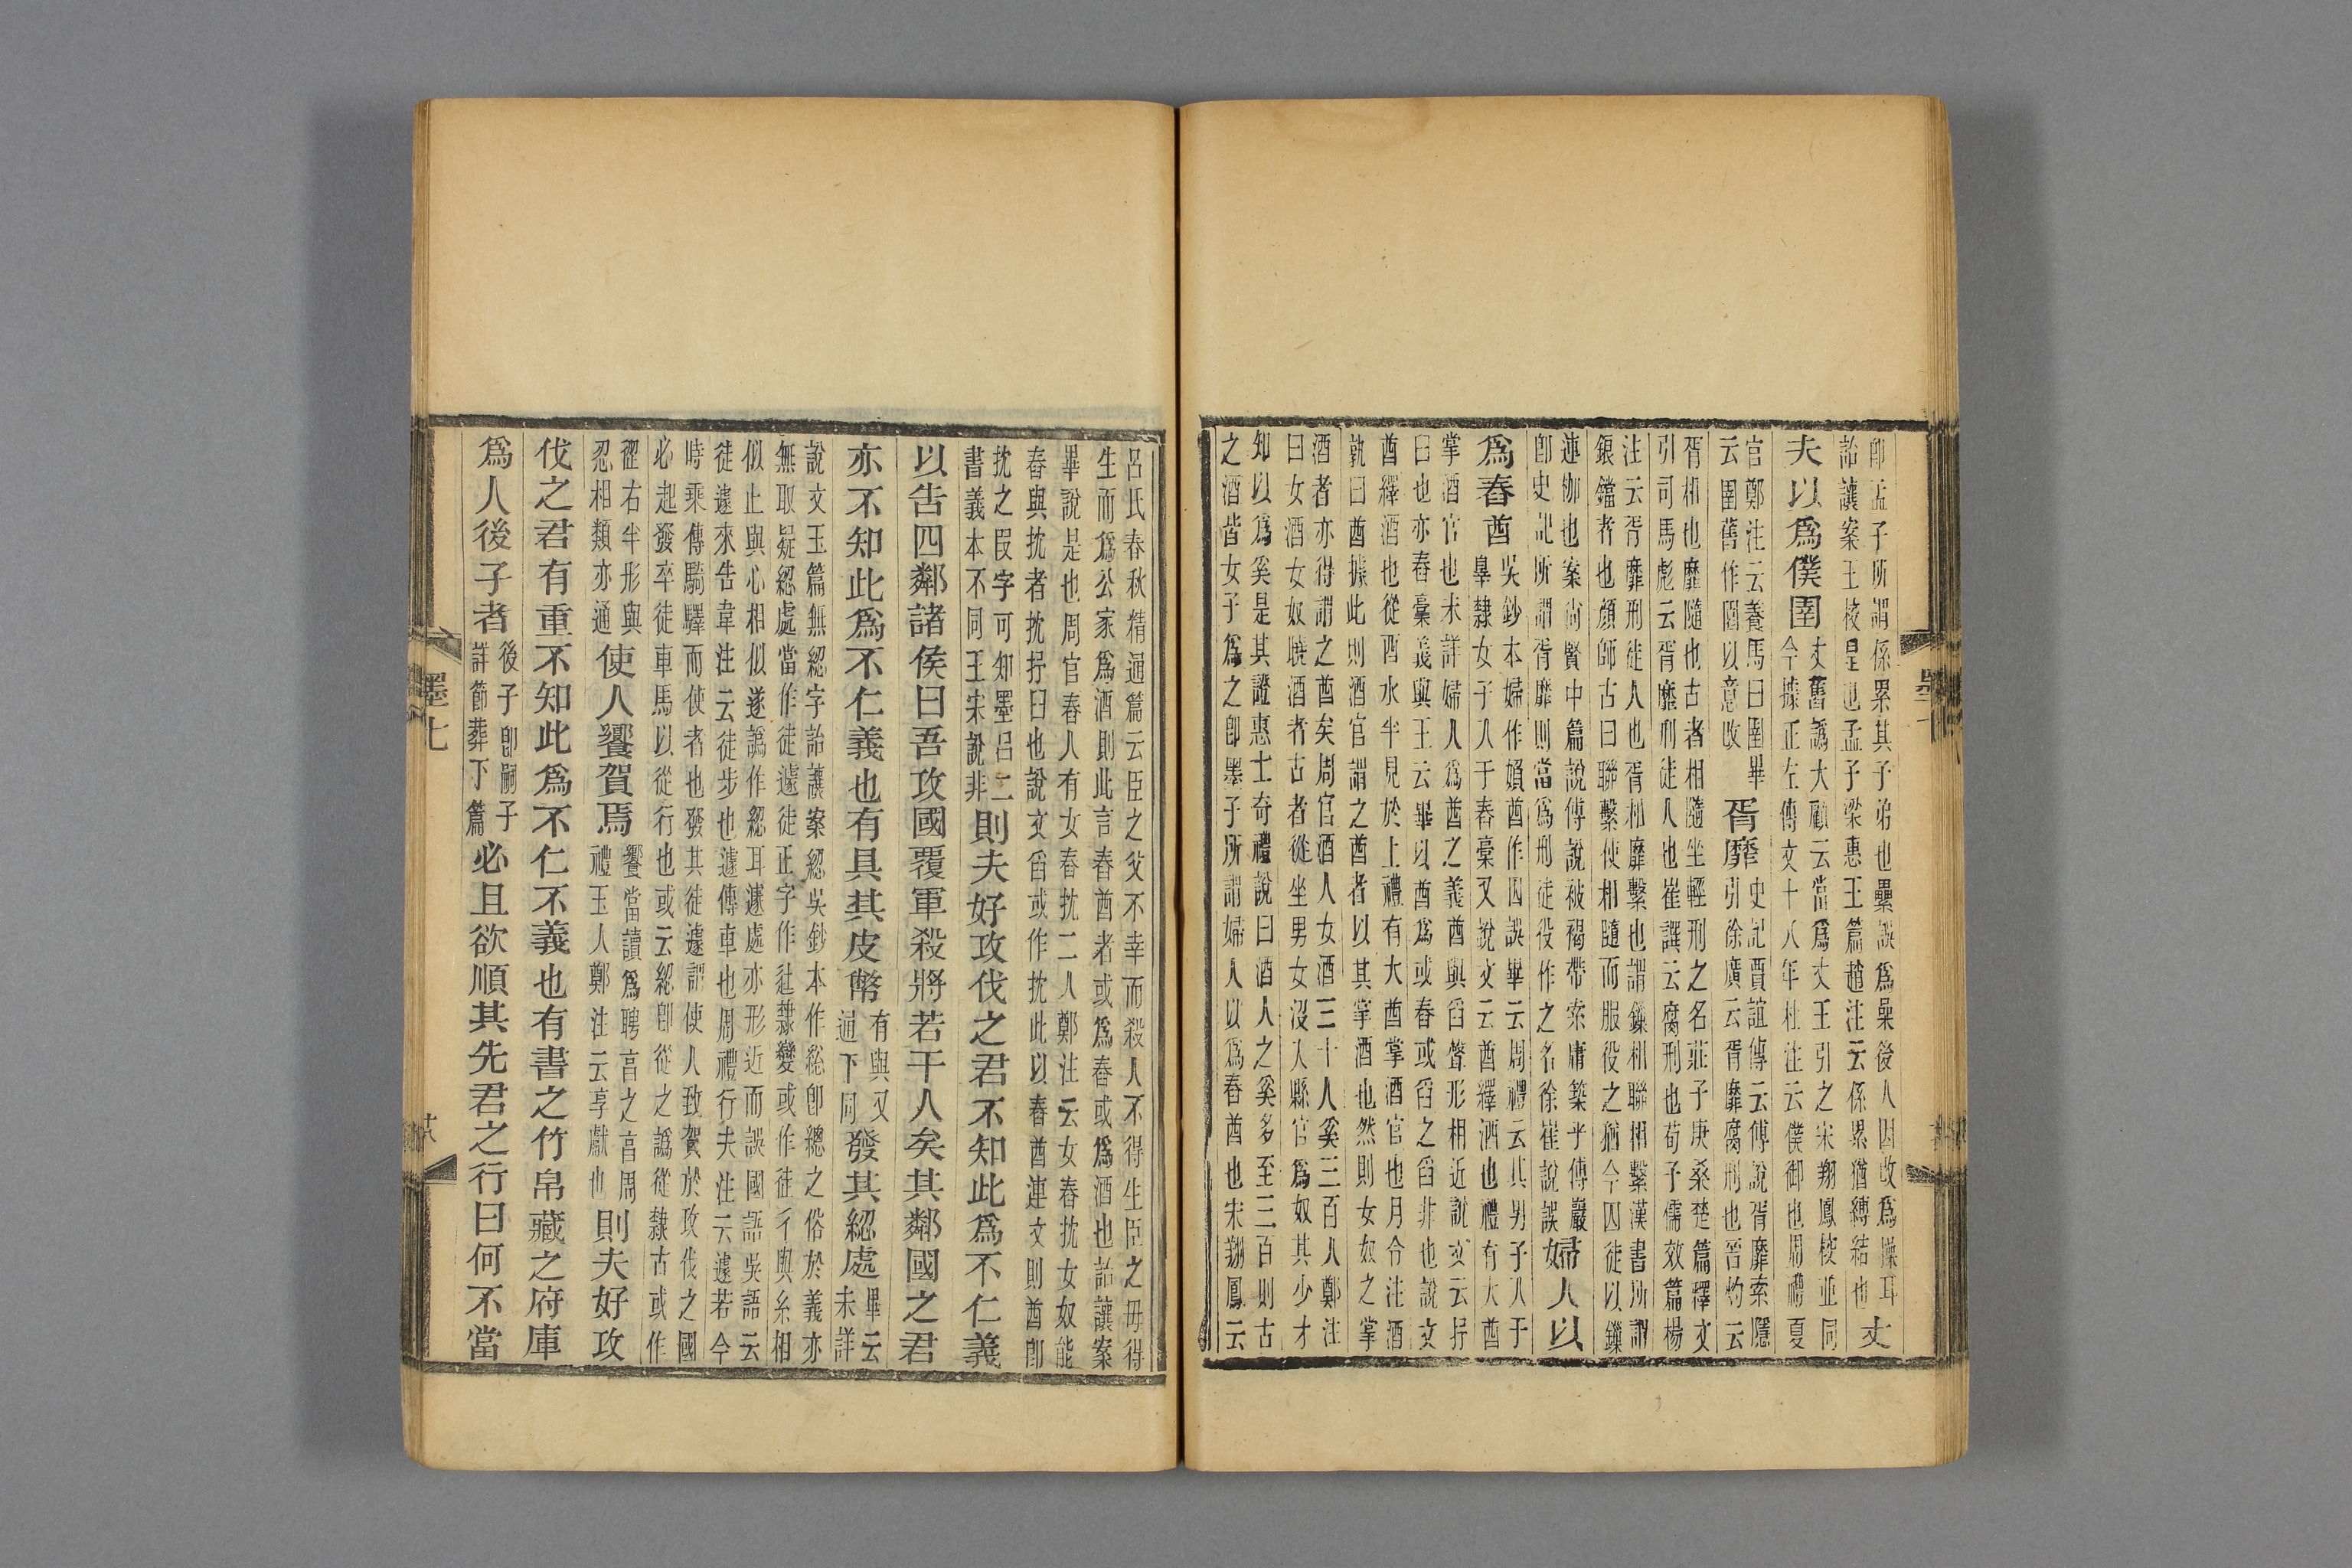 即孟子所謂係累其子弟也壘誤爲櫐後人因改爲操耳
詒讓案王校是也孟子梁惠王篇趙注云係累猶縛結也丈
夫以爲僕圉丈舊譌大顧云當爲丈王引之宋翔鳳校並同
今據正左傳文十八年杜注云僕御也周禮夏
官鄭注云養馬曰圉畢
云圉舊作圄以意改胥靡史記賈誼傳云傅說胥靡索隱
引徐廣云胥靡腐刑也晉灼云
胥相也靡隨也古者相隨坐輕刑之名莊子庚桑楚篇釋文
引司馬彪云胥靡刑徒人也崔譔云腐刑也荀子儒效篇楊
注云胥靡刑徒人也胥相靡繫也謂鏁相聯相繫漢書所謂
鋃鐺者也顏師古曰聯繫使相隨而服役之猶今囚徒以鏁
連枷也案尚賢中篇說傅說被褐帶索庸築乎傅巖
即史記所謂胥靡則當爲刑徒役作之名徐崔說誤婦人以
爲舂酋吳鈔本婦作媍酋作囚誤畢云周禮云其男子入于
辠隸女子入于舂槀又說文云酋繹酒也禮有大酋
掌酒官也未詳婦人爲酋之義酋與舀聲形相近說文云抒
臼也亦舂槀義與王云畢以酋爲或舂或舀之舀非也說文
酋繹酒也從酉水半見於上禮有大酋掌酒官也月令注酒
孰曰酋據此則酒官謂之酋者以其掌酒也然則女奴之掌
酒者亦得謂之酋矣周官酒人女酒三十人奚三百人鄭注
曰女酒女奴曉酒者古者從坐男女沒入縣官爲奴其少才
知以爲奚是其證惠士奇禮說曰酒人之奚多至三百則古
之酒皆女子爲之即墨子所謂婦人以爲舂酋也宋翔鳳云
呂氏春秋精通篇云臣之父不幸而殺人不得生臣之母得
生而爲公家爲酒則此言舂酋者或爲舂或爲酒也詒讓案
畢說是也周官舂人有女舂抌二人鄭注云女舂抌女奴能
舂與抌者抌抒臼也說文舀或作抌此以舂酋連文則酋即
抌之叚字可知墨呂二
書義本不同王宋說非則夫好攻伐之君不知此爲不仁義
以告四鄰諸侯曰吾攻國覆軍殺將若干人矣其鄰國之君
亦不知此爲不仁義也有具其皮幣有與又
通下同發其綛處畢云
未詳
說文玉篇無綛字詒讓案綛吳鈔本作總即總之俗於義亦
無取疑綛處當作徒遽徒正字作辻隸變或作徒彳與糸相
似止與心相似遂譌作綛耳遽處亦形近而誤國語吳語云
徒遽來告韋注云徒步也遽傳車也周禮行夫注云遽若今
時乘傳騎驛而使者也發其徒遽謂使人致賀於攻伐之國
必起發卒徒車馬以從行也或云綛即從之譌從隸古或作
䍜右半形與
忍相類亦通使人饗賀焉饗當讀爲聘享之享周
禮玉人鄭注云享獻也則夫好攻
伐之君有重不知此爲不仁不義也有書之竹帛藏之府庫
爲人後子者後子卽嗣子
詳節葬下篇必且欲順其先君之行曰何不當
墨七
十八